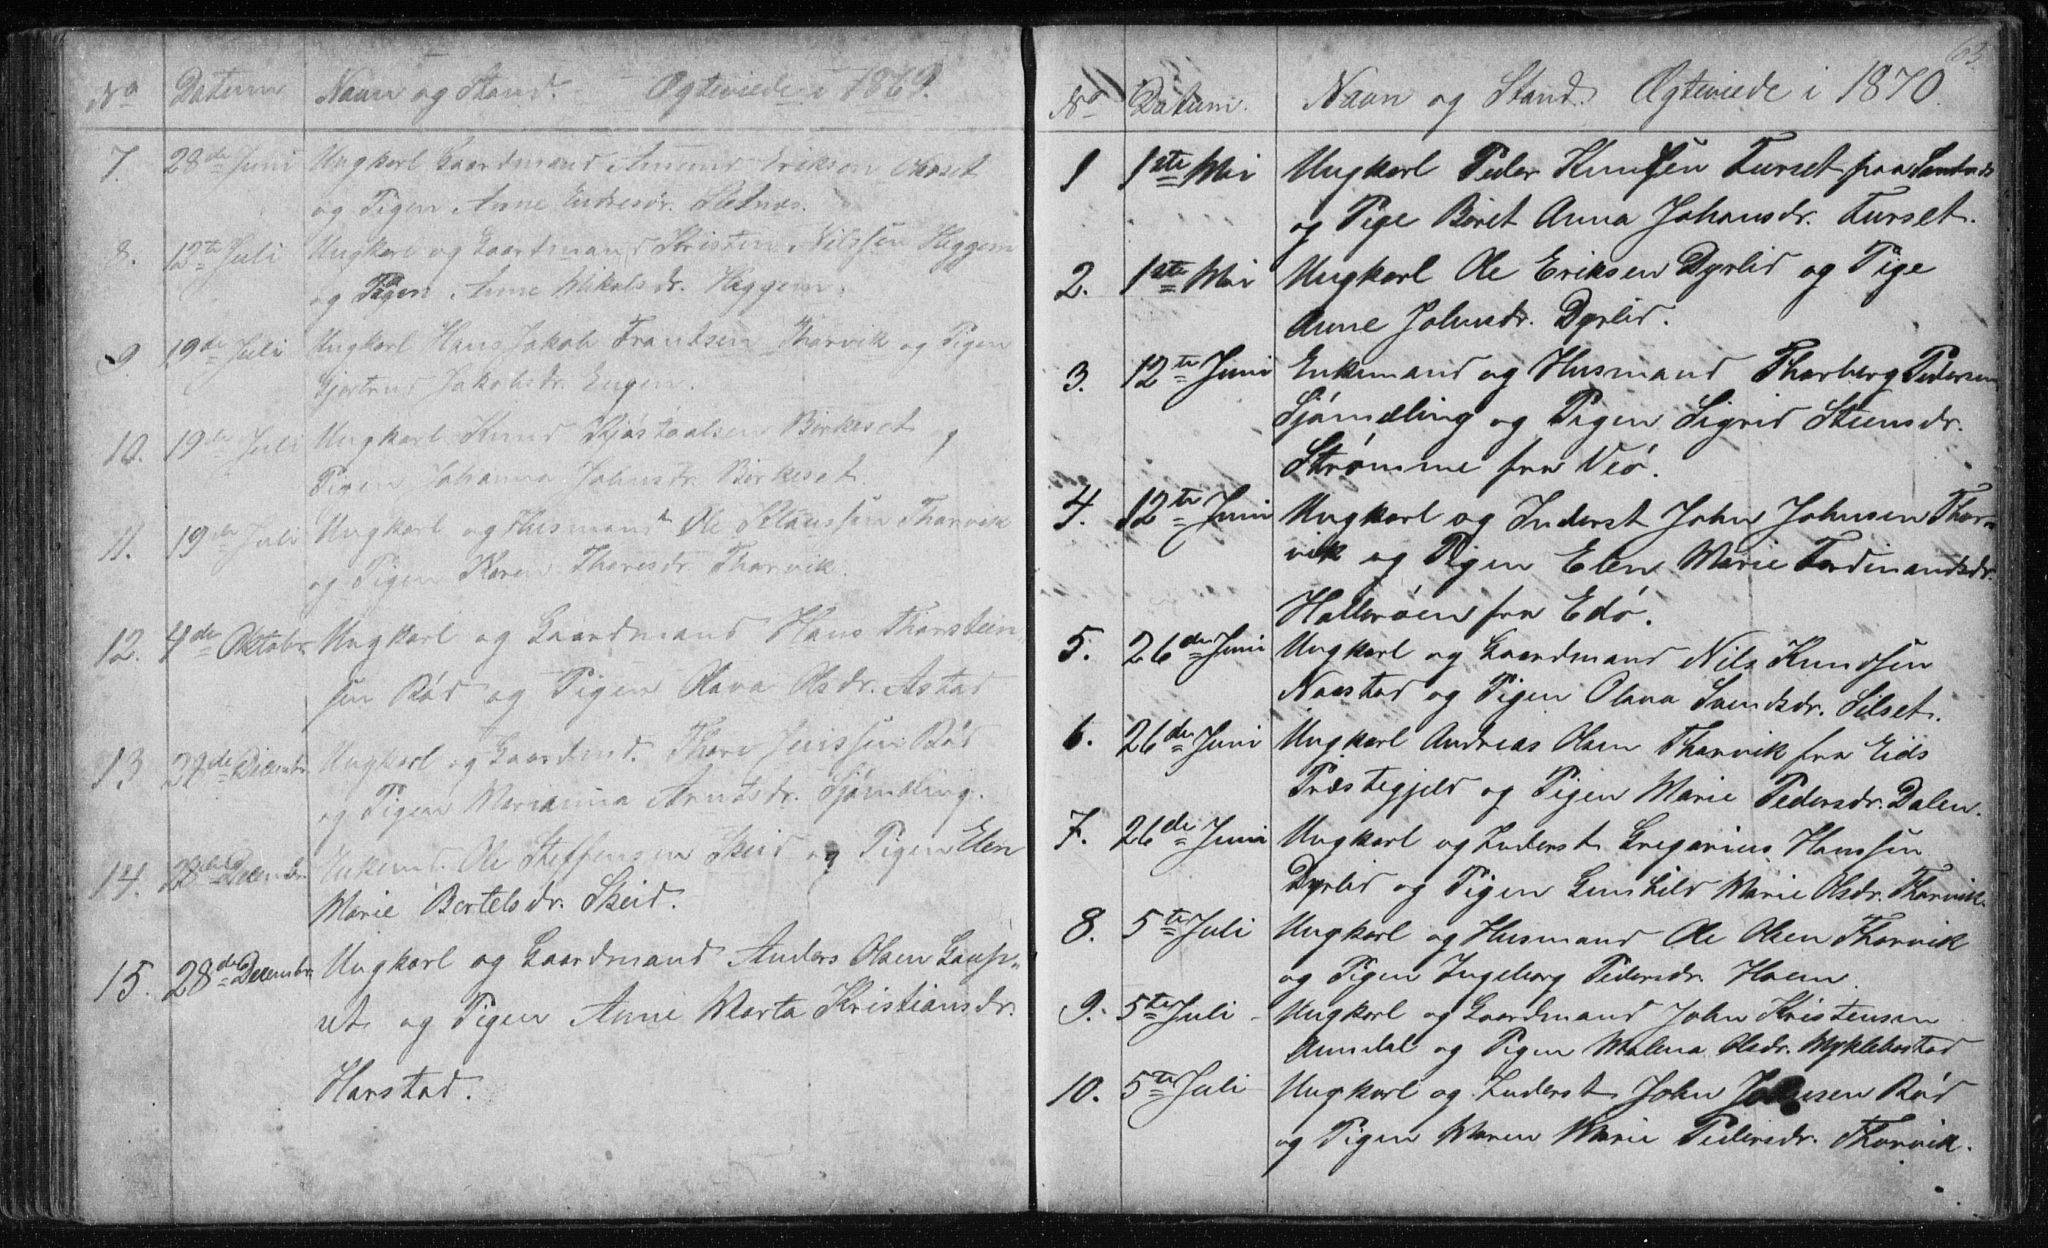 No Datum Navn og Stand. Ægteviede i 1869.
7. 28de Juni Ungkarl Gaardmand Amund Eriksen
og Pigen Anne Endresdr.
8. 12te Juli Ungkarl og Gaardmand Kristen Nilssen Heggem
og Pigen Anne Nikolsdr. Heggem.
9. 19de Juli Ungkarl Hans Jakob Frantsen Thorvik og Pigen
Gjertrud Jakobsdr. Engen.
10. 19de Juli Ungkarl Knud Birkeset og
Pigen Johanna Johnsdr. Birkeset.
11. 19de Juli Ungkarl og Husmand Ole Thorvik
og Pigen Karen Thoresdr. Thorvik.
12. 4de Oktobr. Ungkarl og Gaardmand Hans Thorstein
sen Rød og Pigen Olava Olsdr. Astad
13. 27de Decembr. Ungkarl og Gaardmd. Thore Jenssen Rød
og Pigen Marianna Arntsdr. Sjømæling.
14. 28de Decembr. Enkemd. Ole Steffensen Skeid og Pigen Elen
Marie Bertelsdr. Skeid.
15. 28de Decembr. Ungkarl og Gaardmand Anders Olsen Gaup=
set og Pigen Anne Marta Kristiansdr.
Harstad.
63
No Datum. Navn og Stand. Ægteviede i 1870.
1 1ste Mai Ungkarl Peder Knutsen Furset paa
og Pige Beret Anna Johansdr. Furset.
2. 1ste Mai Ungkarl Ole Eriksen Dyrlid og Pige
Anne Johnsdr. Dyrlid.
3. 12te Juni Enkemand og Husmand Thorberg Pedersen
Sjømæling og Pigen Sigrid Steensdr.
Strømme fra Veø.
4. 12te Juni Ungkarl og Inderst John Johnsen Thor=
vik og Pigen Elen Marie Ferdinandsdr.
Hallerøen fra Edø.
5. 26de Juni Ungkarl og Gaardmand Nils Knudsen
Naastad og Pigen Olava Svendsdr. Silset.
6. 26de Juni Ungkarl Andreas Olsen Thorvik fra Eids
Præstegjeld og Pigen Marie Pedersdr. Dalen.
7. 26de Juni Ungkarl og Inderst Gregorius Hanssen
Dyrlid og Pigen Gunhild Marie Olsdr. Thorvik.
8. 5te Juli Ungkarl og Husmand Ole Olsen Thorvik
og Pigen Ingeborg Pedersdr. Hoem.
9. 5te Juli Ungkarl og Gaardmand John Kristensen
og Pigen Malena Olsdr. Myklebostad
10. 5te Juli Ungkarl og Inderst John Johnsen Rød
og Pigen Maren Marie Pedersdr. Thorvik.